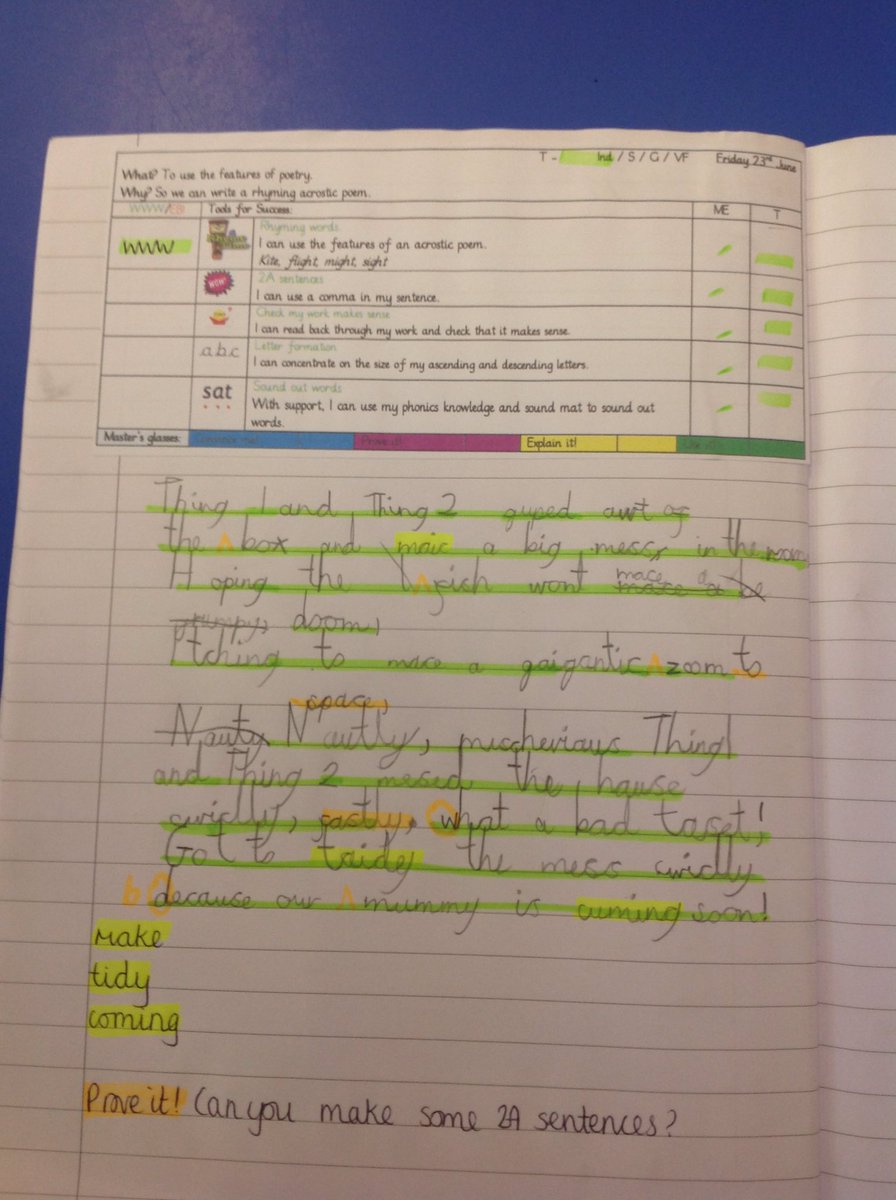 T - Ind / S / G / VF Friday 23rd June
What? To use the features of poetry.
Why? So we can write a rhyming acrostic poem.
WWW/EBI Tools for Success: ME T
Rhyming words
WWW I can use the features of an acrostic poem.
Kite, flight, might, sight
WOW! 2A sentences
I can use a comma in my sentence.
Check my work makes sense
I can read back through my work and check that it makes sense.
a.b.c Letter formation
I can concentrate on the size of my ascending and descending letters.
sat Sound out words
With support, I can use my phonics knowledge and sound mat to sound out
words.
Master's glasses: Convince me! Prove it! Explain it!
Thing 1 and Thing 2 guped awt of
the box and maic a big mess, in the room
Hoping the rich wont mace a
doom,
Itching to mace a gaigantic zoom to
space,
Nauty Nautly, mischevious Thing 1
and Thing 2 mesed the hause
cwiclly, fastly, what a bad taset!
Got to taidey the mess cwiclly
b decause our mummy is cuming soon!
Make
tidy
coming
Prove it! Can you make some 2A sentences?